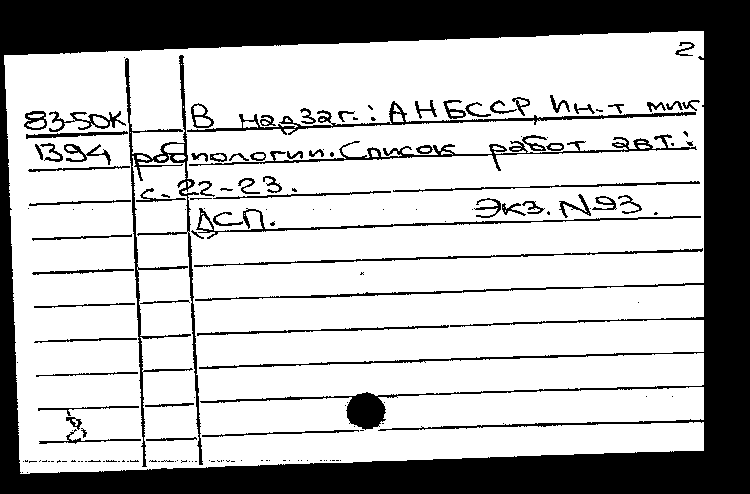 2.
83-50К В надзаг.: АН БССР, Ин-т мик-
1394 робиологии. Список работ авт.:
с. 22-23.
ДСП. Экз. N 93.